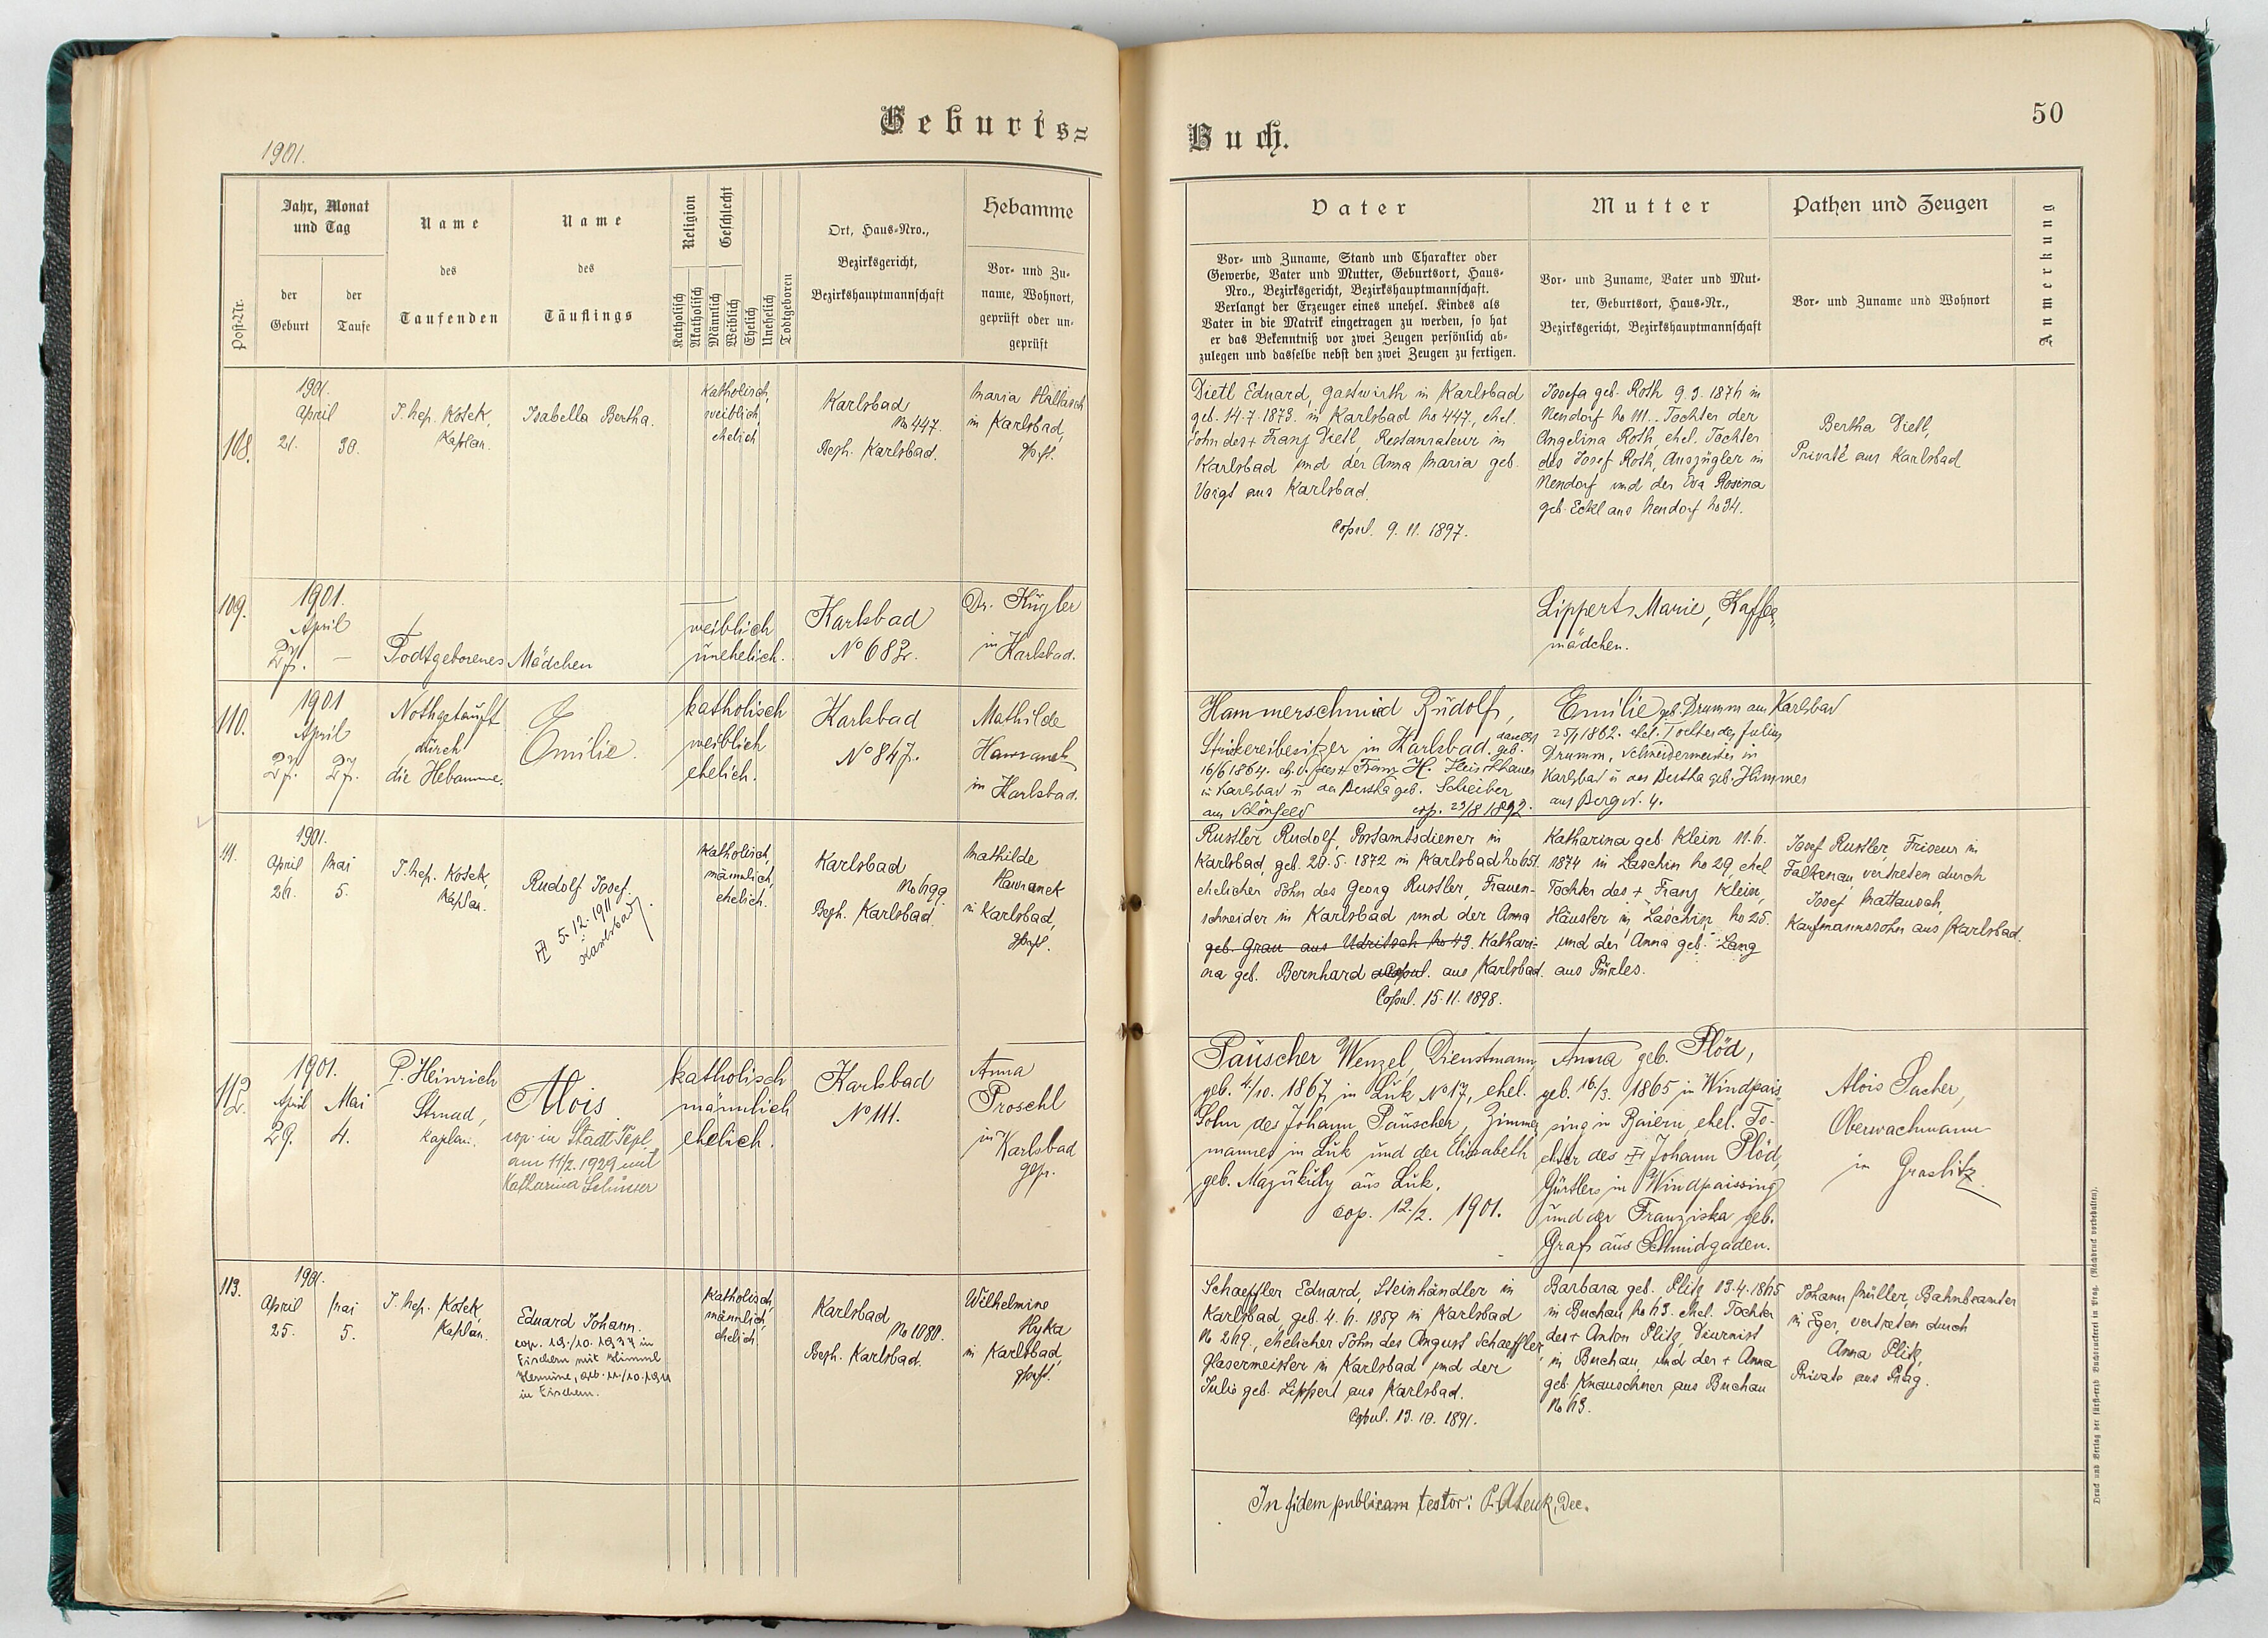 Geburts=
1901.
Post-Nr.
Jahr, Monat
und Tag
der
Geburt
der
Taufe
Name
des
Taufenden
Name
des
Täuflings
Religion
Katholisch
Akatholisch
Geschlecht
Männlich
Weiblich
Ehelich
Unehelich
Todtgeboren
Ort, Haus-Nro.,
Bezirksgericht,
Bezirkshauptmannschaft
Hebamme
Vor- und Zu-
name, Wohnort,
geprüft oder un-
geprüft
108.
1901.
April
21.
30.
J. Nep. Kosek,
Kaplan.
Isabella Bertha.
katholisch,
weiblich,
ehelich
Karlsbad
No 447.
Bezh. Karlsbad.
Maria Hallasch
in Karlsbad,
109.
1901.
April
27.
—
Todtgeborenes Mädchen
weiblich
unehelich.
Karlsbad
No 682.
Dr. Kugler
in Karlsbad.
110.
1901
April
27.
27.
Nothgetauft
durch
die Hebamme.
Emilie.
katholisch
weiblich
ehelich.
Karlsbad
No 847.
Mathilde
Hawranek
in Karlsbad.
111.
1901.
April
26.
Mai
5.
J. Nep. Kosek,
Kaplan.
Rudolf Josef.
5.12.1911
Karlsbad.
katholisch,
männlich,
ehelich.
Karlsbad
No 699.
Bezh. Karlsbad.
Mathilde
Hawranek
in Karlsbad,
112.
1901.
April
29.
Mai
4.
P. Heinrich
Strnad,
Kaplan.
Alois.
cop. in Stadt Tepl
am 11/2. 1929 mit
Katharina
katholisch
männlich
ehelich.
Karlsbad
No 111.
Anna
Proschl
in Karlsbad
gepr.
113.
1901.
April
25.
Mai
5.
J. Nep. Kosek,
Kaplan.
Eduard Johann.
cop. 19./10. 1937 in
Fischern mit Himml
Hermine, geb. 11/10. 1911
in Fischern.
katholisch,
männlich,
ehelich.
Karlsbad
No 1080.
Bezh. Karlsbad.
Wilhelmine
Hyka
in Karlsbad,
50
Buch.
Vater
Vor- und Zuname, Stand und Charakter oder
Gewerbe, Vater und Mutter, Geburtsort, Haus-
Nro., Bezirksgericht, Bezirkshauptmannschaft.
Verlangt der Erzeuger eines unehel. Kindes als
Vater in die Matrik eingetragen zu werden, so hat
er das Bekenntniß vor zwei Zeugen persönlich ab-
zulegen und dasselbe nebst den zwei Zeugen zu fertigen.
Mutter
Vor- und Zuname, Vater und Mut-
ter, Geburtsort, Haus-Nr.,
Bezirksgericht, Bezirkshauptmannschaft
Pathen und Zeugen
Vor- und Zuname und Wohnort
Anmerkung
Dietl Eduard, Gastwirth in Karlsbad
geb. 14.7.1873. in Karlsbad No 447., ehel.
Sohn des + Franz Dietl, Restaurateur in
Karlsbad und der Anna Maria geb.
Voigt aus Karlsbad.
Copul. 9. 11. 1897.
Josefa geb. Roth 9.3. 1876 in
Nendorf No 111.. Tochter der
Angelina Roth, ehel. Tochter
des Josef Roth, Auszügler in
Nendorf und der Eva Rosina
geb. Eckl aus Nendorf No 34.
Bertha Dietl,
Private aus Karlsbad
Lippert Marie, Kaffee
mädchen.
Hammerschmied Rudolf,
Strickereibesitzer in Karlsbad. geb. daselbst
16/6 1864. eh. S. des + Franz H. Fleischhauer
in Karlsbad u der Bertha geb. Scheiber
aus Schönfeld cop. 23/8 1892.
Emilie geb. Drumm aus Karlsbad
25/1 1862. ehel. Tochter des Julius
Drumm, Schneidermeister in
Karlsbad u der Bertha geb. Himmer
aus Berg N. 4.
Russler Rudolf, Postamtsdiener in
Karlsbad, geb. 20. 5. 1872 in Karlsbad No 651.
ehelicher Sohn des Georg Russler, Frauen-
schneider in Karlsbad und der Anna
geb. Grau aus Udritsch No 43. Kathari-
na geb. Bernhard Copul. aus Karlsbad.
Copul. 15. 11. 1898.
Katharina geb. Klein 11. 6.
1874 in Laschin No 29, ehel
Tochter des + Franz Klein,
Häusler in Laschin, No 25.
und der Anna geb. Lang
aus Purles.
Josef Russler, Friseur in
Falkenau, vertreten durch
Josef Mattausch,
Kaufmannssohn aus Karlsbad.
Pauscher Wenzel, Dienstmann,
geb. 4/10. 1867, in Luk No 17, ehel.
Sohn des Johann Pauscher, Zimmer
mannes in Luk und der Elisabeth
geb. Mazukuly aus Luk.
cop. 12./2. 1901.
Anna geb. Plöd,
geb. 16./3. 1865 in Windpais
sing in Baiern, ehel. To-
chter des Johann Plöd,
Gürtlers in Windpaissing
und der Franziska geb.
Graf aus Schmidgaden.
Alois Sacher,
Oberwachmann
in Graslitz
Schaeffler Eduard, Steinhändler in
Karlsbad, geb. 4. 6. 1859 in Karlsbad
No 269., ehelicher Sohn des August Schaeffler
Glasermeister in Karlsbad und der
Julie geb. Lippert aus Karlsbad.
Copul. 13. 10. 1891.
Barbara geb. Plitz 13.4.1865
in Buchau No 63. ehel. Tochter
des + Anton Plitz, Diurnist
in Buchau, und der + Anna
geb. Knauschner aus Buchau
No 63.
Johann Müller, Bahnbeamter
in Eger, vertreten durch
Anna Plitz,
Private aus Prag.
In fidem publicam testor: Dec.
Druck und Verlag der fürst-erzb. Buchdruckerei in Prag. (Nachdruck vorbehalten).